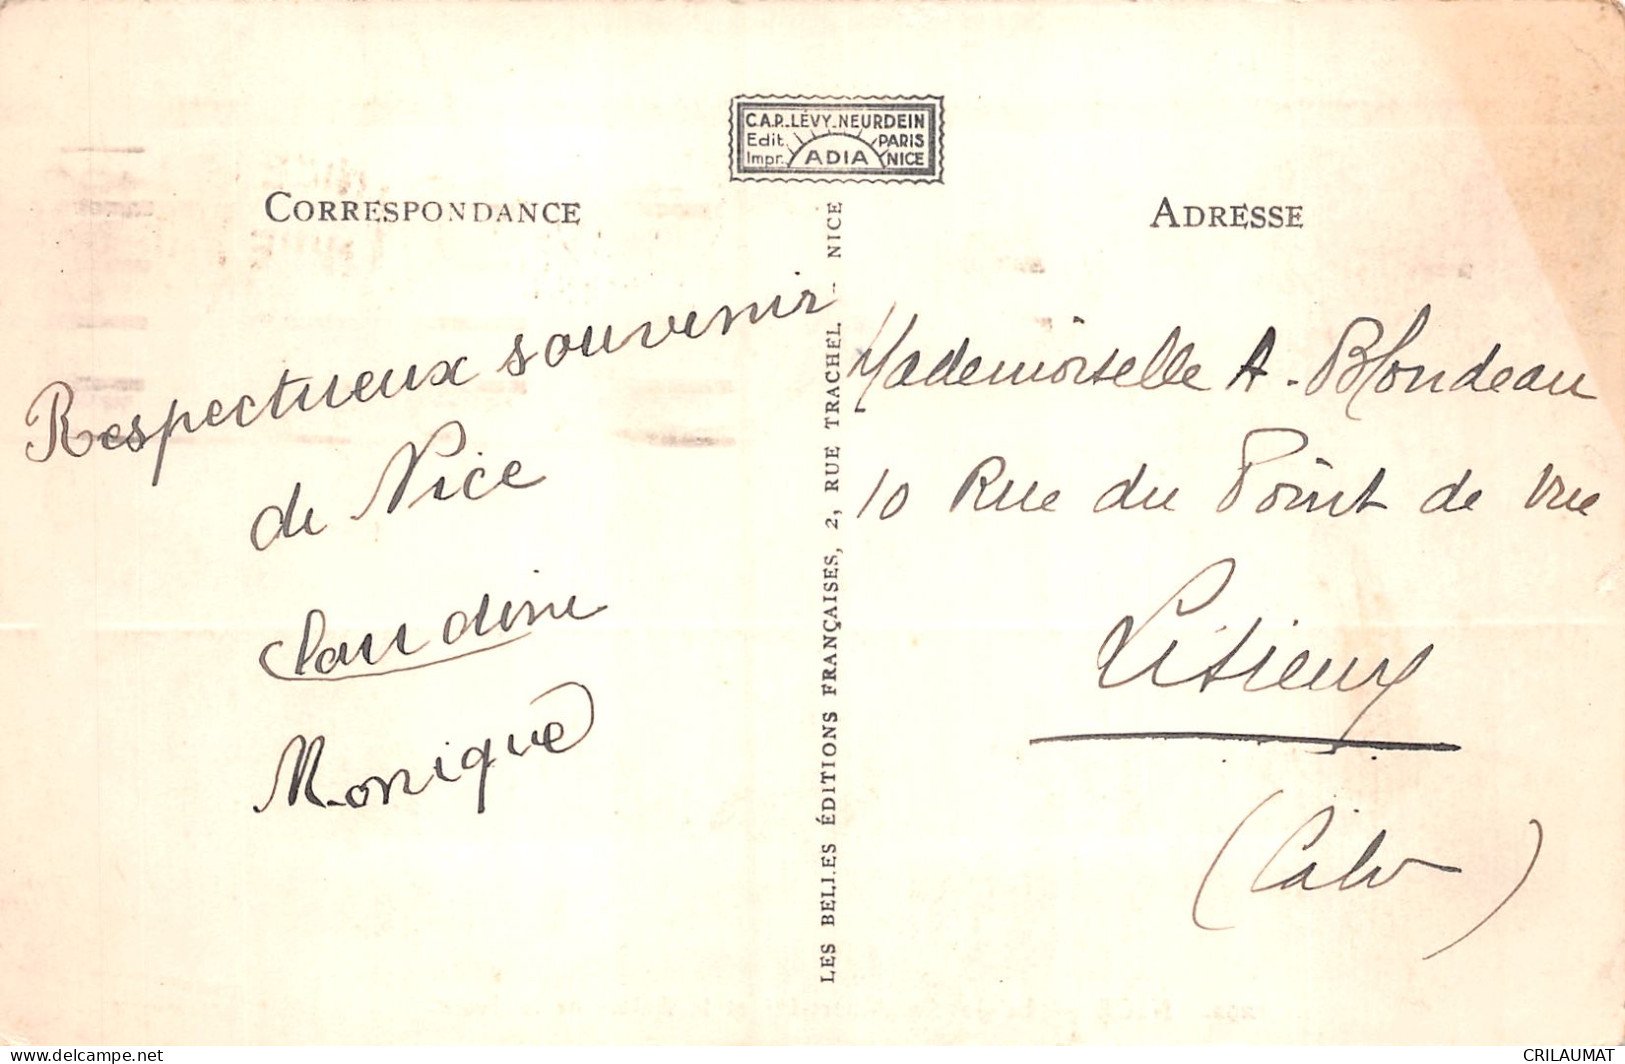 C.A.P.-LÉVY-NEURDEIN
Edit. PARIS
Impr. ADIA NICE
CORRESPONDANCE
Respectueux souvenir
de Nice
Claudine
Monique
LES BELLES ÉDITIONS FRANÇAISES, 2, RUE TRACHEL - NICE
ADRESSE
Mademoiselle A. Blondeau
10 Rue du Point de Vue
Lisieux
(Calv)
CRILAUMAT